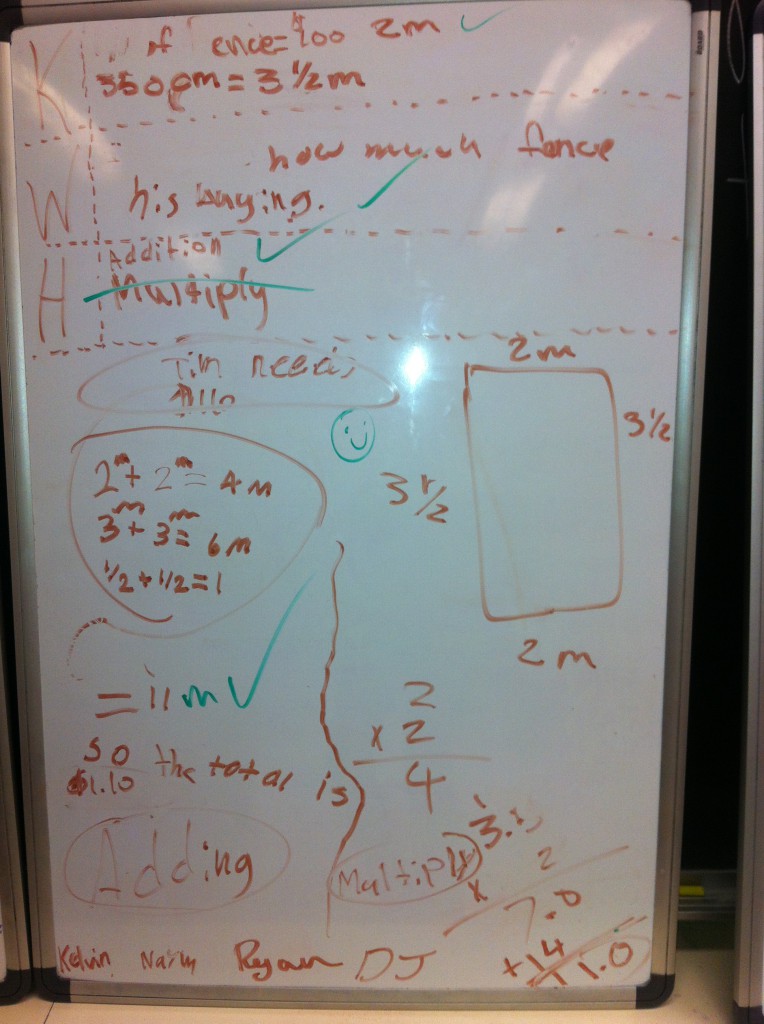 K
of ence= $100 2m ✓
350cm = 3 1/2 m
W
how much fence
his buying. ✓
H
Addition ✓
Multiply
Tim needs
$110
2m + 2m = 4m
3m + 3m = 6m
1/2 + 1/2 = 1
= 11m ✓
so the total is
$1.10
Adding
2m
3 1/2
3 1/2
2m
2
x 2
4
Multiply
3.5
x 2
7.0
+ 4
11.0
Kelvin
Ryan DJ